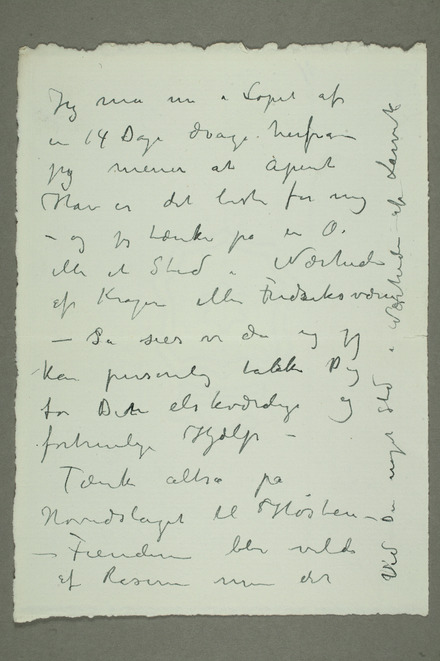 Jeg må nu i Løpet af
en 14 Dage drage herfra
jeg mener at åpent
Hav er det beste for mig
– og jeg tænker på en Ø.
eller et Sted i Nærheden
af Kragerø eller Fredriksværn
– Så sees vi da og jeg
kan personlig takke Dig
for Din elskværdige og
fortrinlige Hjælp –
Tænk altså på
Hovedslaget til Høsten –
– Fienden blir vild
af Raseri når det
Ved Du noget Sted i Nærheden af Larvik